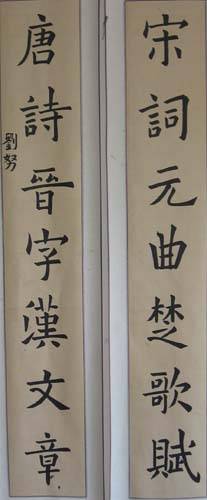 宋詞元曲楚歌賦
唐詩晉字漢文章
劉努